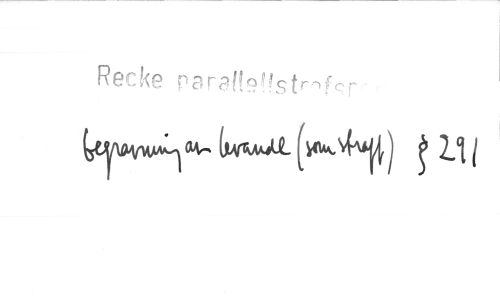 Recke parallellstrofer
begravning av levande (som straff) § 291